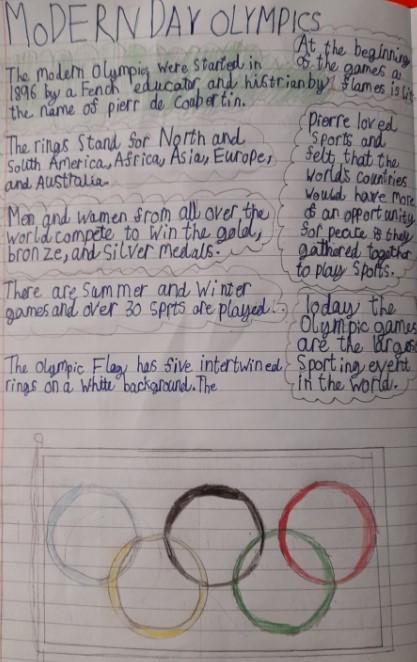 MODERN DAY OLYMPICS
The modern Olympics were started in
1896 by a Fench educator and histrian by
the name of pierr de Coabertin.
The rings stand for North and
South America, Africa, Asia, Europe,
and Australia.
Men and women from all over the
world compete to win the gold,
bronze, and silver medals.
There are summer and winter
games and over 30 sprts are played.
The Olympic Flag has five intertwined
rings on a white background. The
At the beginning
of the games a
flames is
Pierre loved
sports and
felt, that the
world's countries
would have more
of an opportunity
for peace is they
gathered together
to play sports.
Today the
Olympic games
are the
sporting event
in the world.